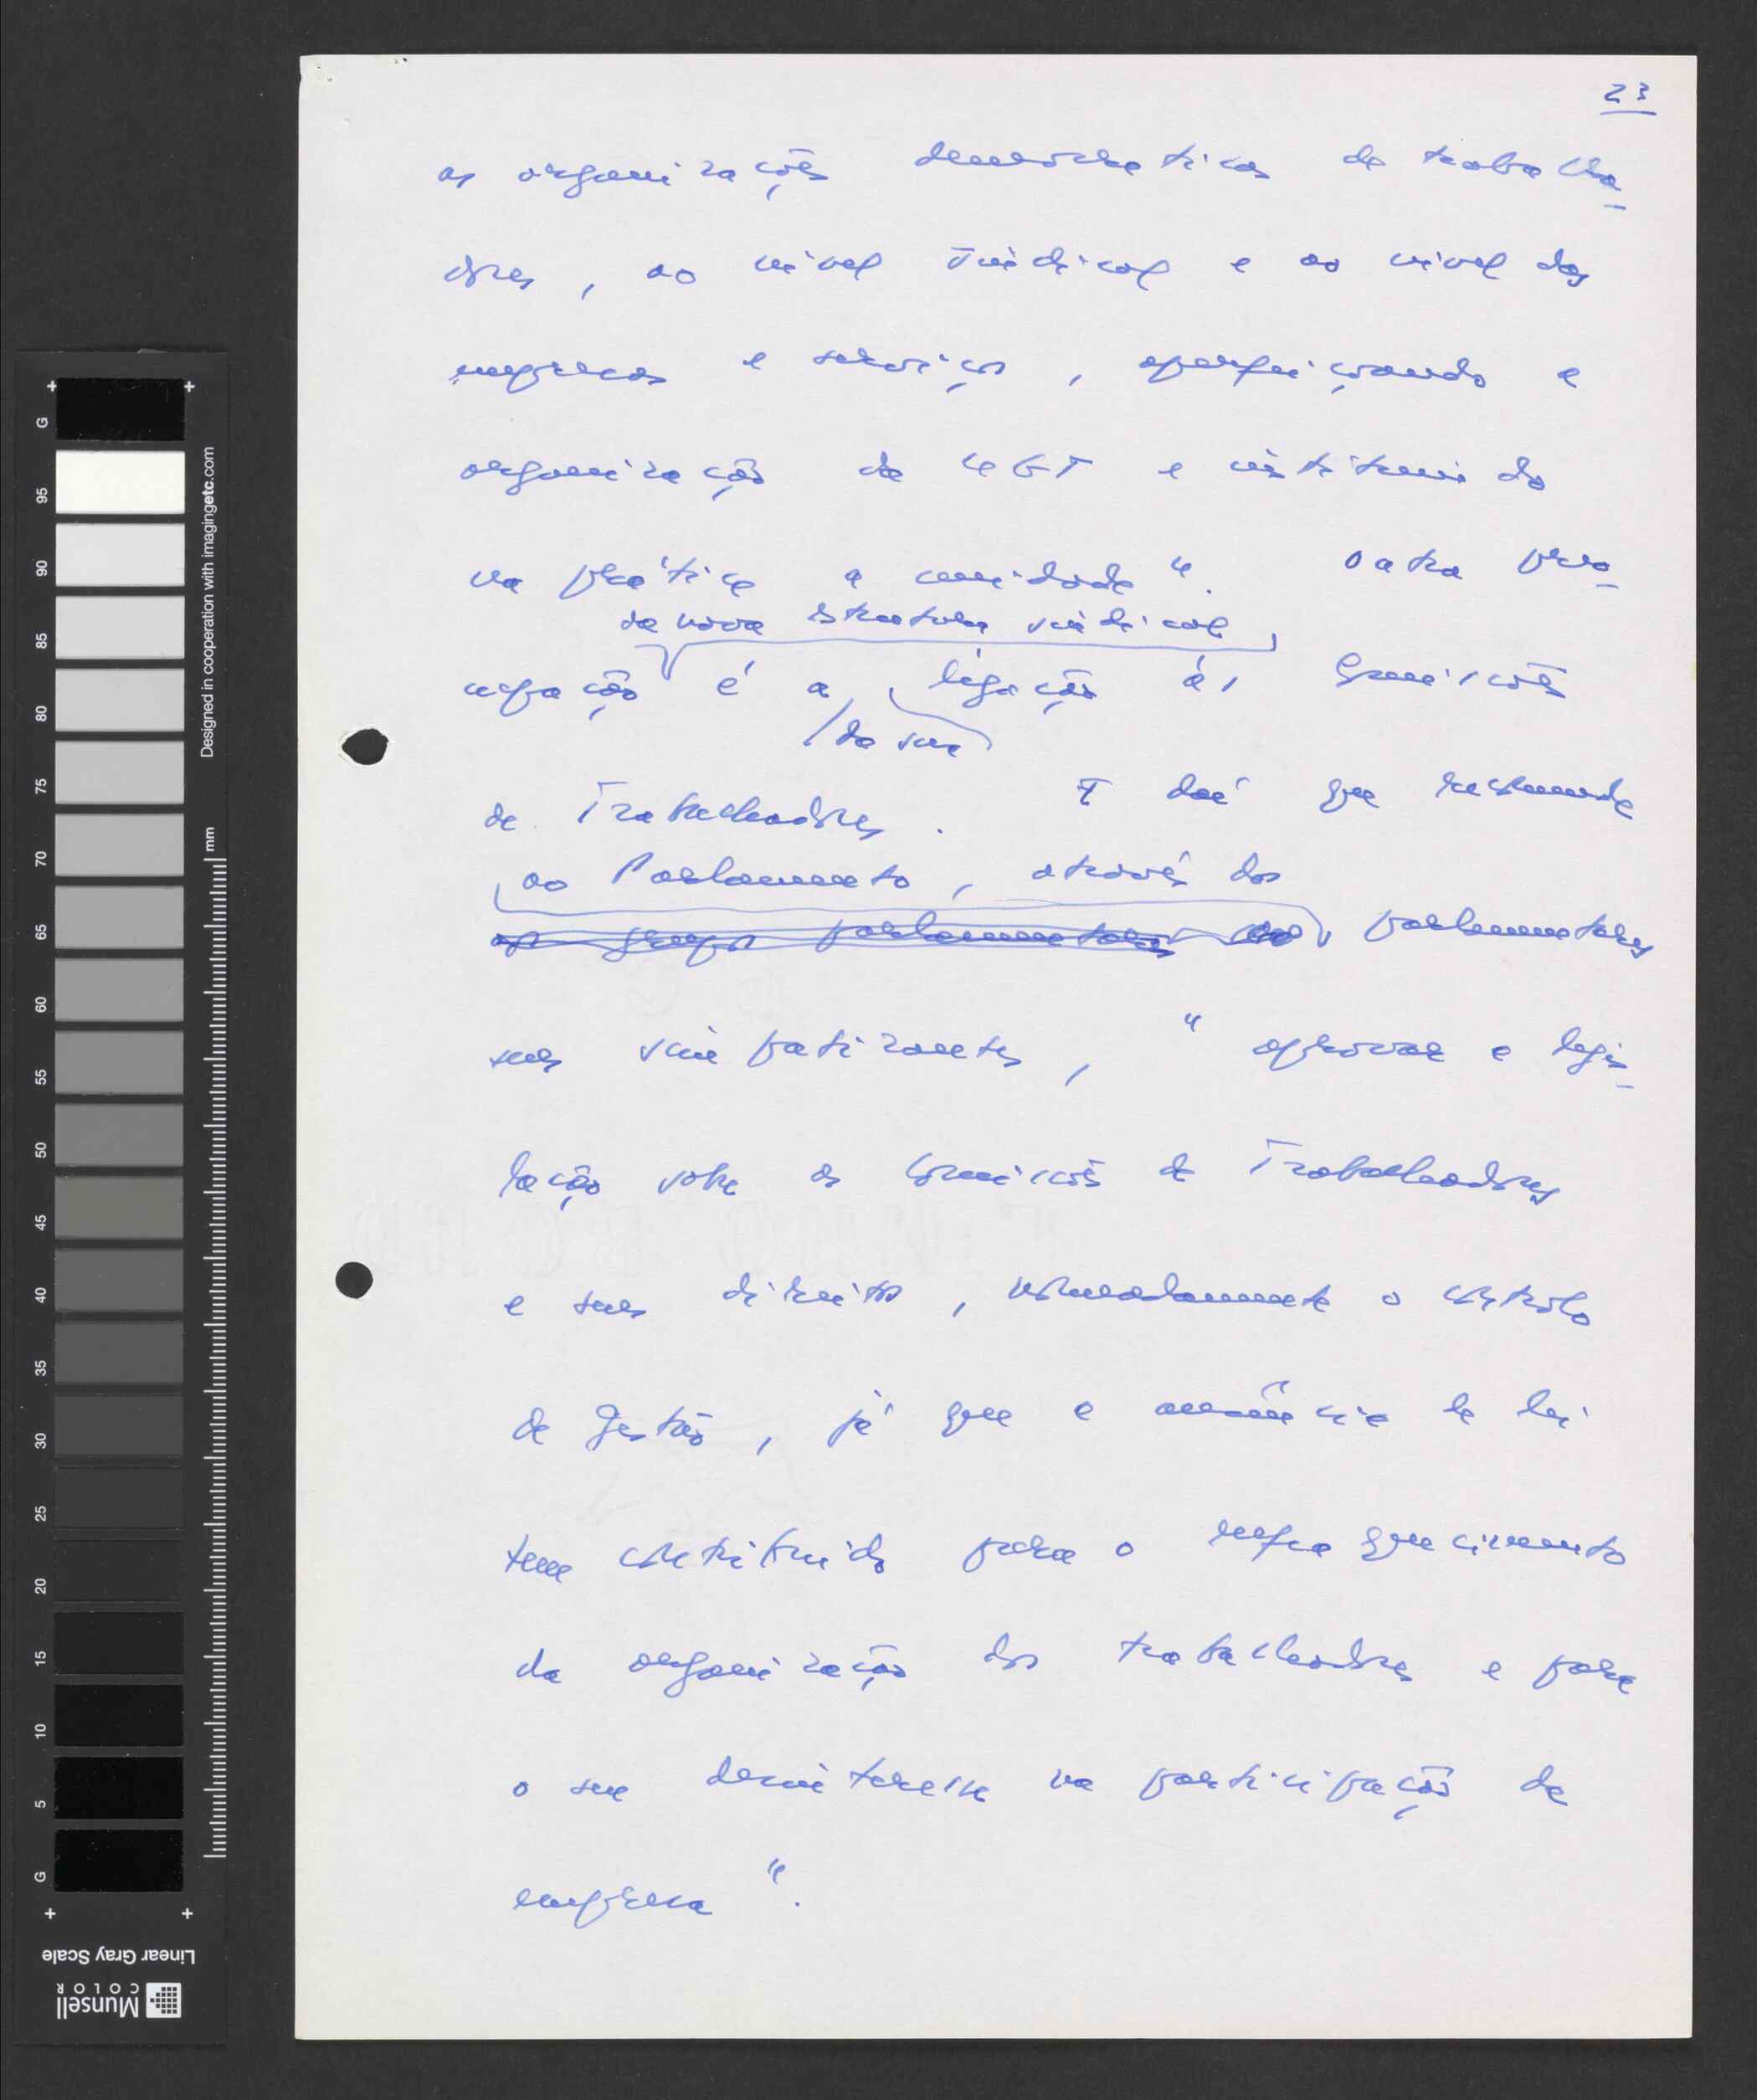 23
as organizações democráticas de trabalha-
dores, ao nível sindical e ao nível das
empresas e serviços, aperfeiçoando a
organização da UGT e
na prática a unidade". Outra preo-
da nova estrutura sindical,
cupação é a ligação às Comissões
da sua
de Trabalhadores. E daí que
ao Parlamento, através dos
os grupos parlamentares dos parlamentares
seus simpatizantes, "aprovar a legis-
lação sobre as Comissões de Trabalhadores
e seus direitos, nomeadamente o controlo
de gestão, já que a ausência de lei
tem contribuído para o enfraquecimento
da organização dos trabalhadores e para
o seu desinteresse na participação da
empresa".
G 95 90 85 80 75 70 65 60 55 50 45 40 35 30 25 20 15 10 5 G
Designed in cooperation with imagingetc.com
mm
Linear Gray Scale
Munsell
COLOR